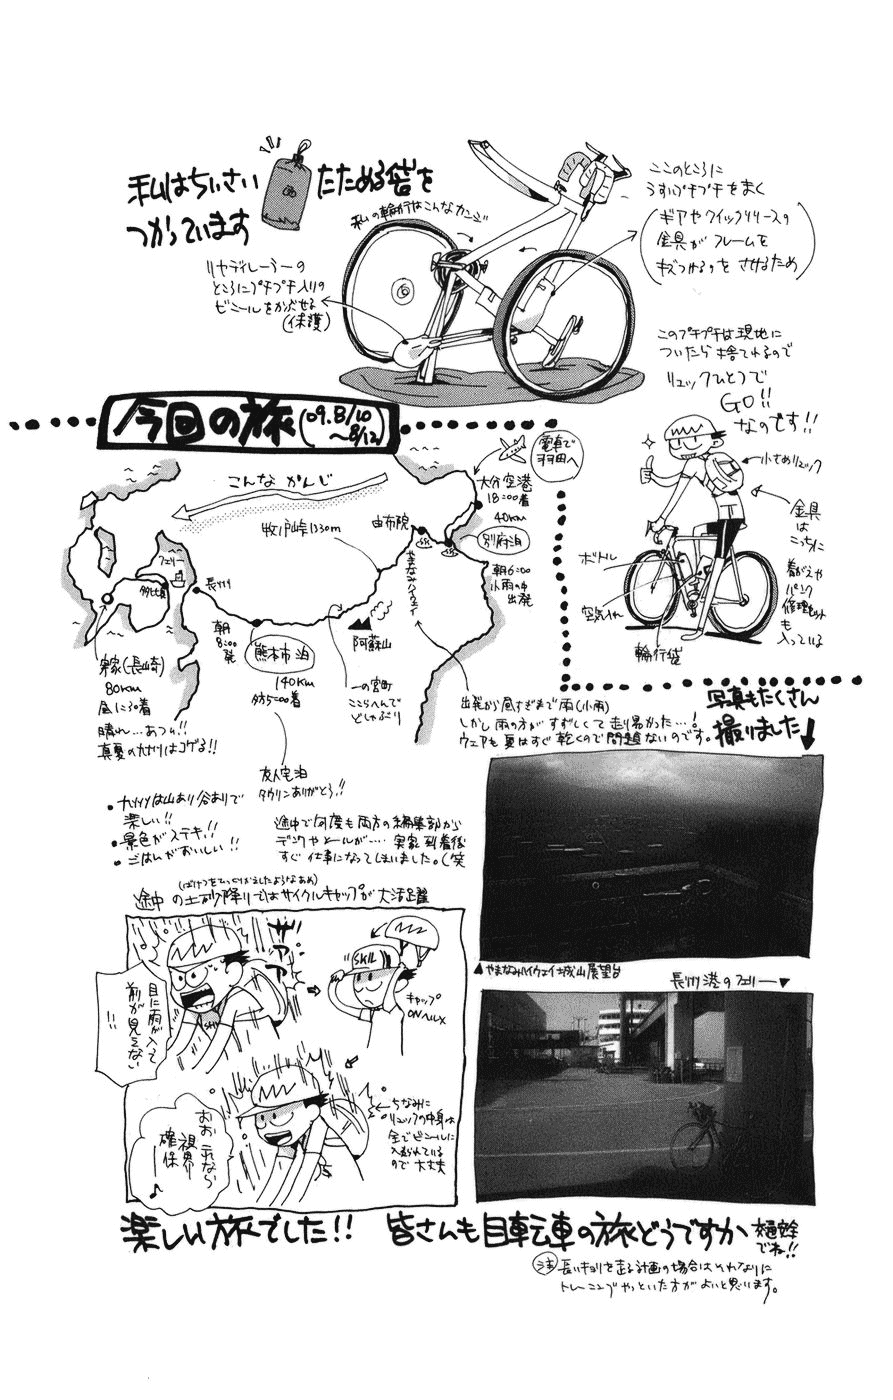 私はちいさい
たためる袋を
つかっています
私の輪行はこんなカンジ
リヤディレーラーの
ところにプチプチ入りの
ビニールをかぶせる
(保護)
ここのところに
うすいプチプチをまく
(ギアやクイックリリースの
金具がフレームを
キズつけるのをさせるため)
このプチプチは現地に
ついたら捨てれるので
リュックひとつで
GO!!
なのです!!
小さめリュック
金具は
こっちに
着がえや
パンク
修理セット
も
入っている
ボトル
空気入れ
輪行袋
今回の旅(09.8/10
〜8/12)
こんなかんじ
電車で
羽田へ
大分空港
18:00着
40km
別府泊
朝6:00
小雨の中
出発
由布院
やまなみハイウェイ
牧ノ戸峠1330m
阿蘇山
一の宮町
ここらへんで
どしゃぶり
熊本市泊
140km
夕方5:00着
朝
8:00
発
長洲
フェリー
多比良
実家(長崎)
80km
昼に30着
晴れ…あつい!!
真夏の九州はコゲる!!
友人宅泊
タウリンありがとう!!
出発から昼すぎまで雨(小雨)
しかし雨の方がすずしくて走り易かった…!
ウェアも夏はすぐ乾くので問題ないのです。
写真もたくさん
撮りました
・九州は山あり谷ありで
楽しい!!
・景色がステキ!!
・ごはんがおいしい!!
途中で何度も両方の編集部から
デンワやメールが…. 実家到着後
すぐ仕事になってしまいました。(笑
(ばけつをひっくりかえしたようなあめ)
途中の土砂降りではサイクルキャップが大活躍
ザアアア
目に雨が入って
前が見えない
!!
SKIL
キャップ
ONヘルメ
おおこれなら
視界
確保
♪
ちなみに
リュックの中身は
全てビニールに
入れられている
ので大丈夫
▲やまなみハイウェイ城山展望台
長洲港のフェリー▼
楽しい旅でした!! 皆さんも自転車の旅どうですか
交通安全
でね!!
注 長いキョリを走る計画の場合はそれなりに
トレーニングやっといた方がよいと思います。